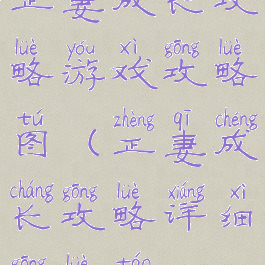 正妻成长攻
lüè yóu xì gōng lüè
略游戏攻略
tú zhèng qī chéng
图（正妻成
cháng gōng lüè xiáng xì
长攻略详细
gōng lüè